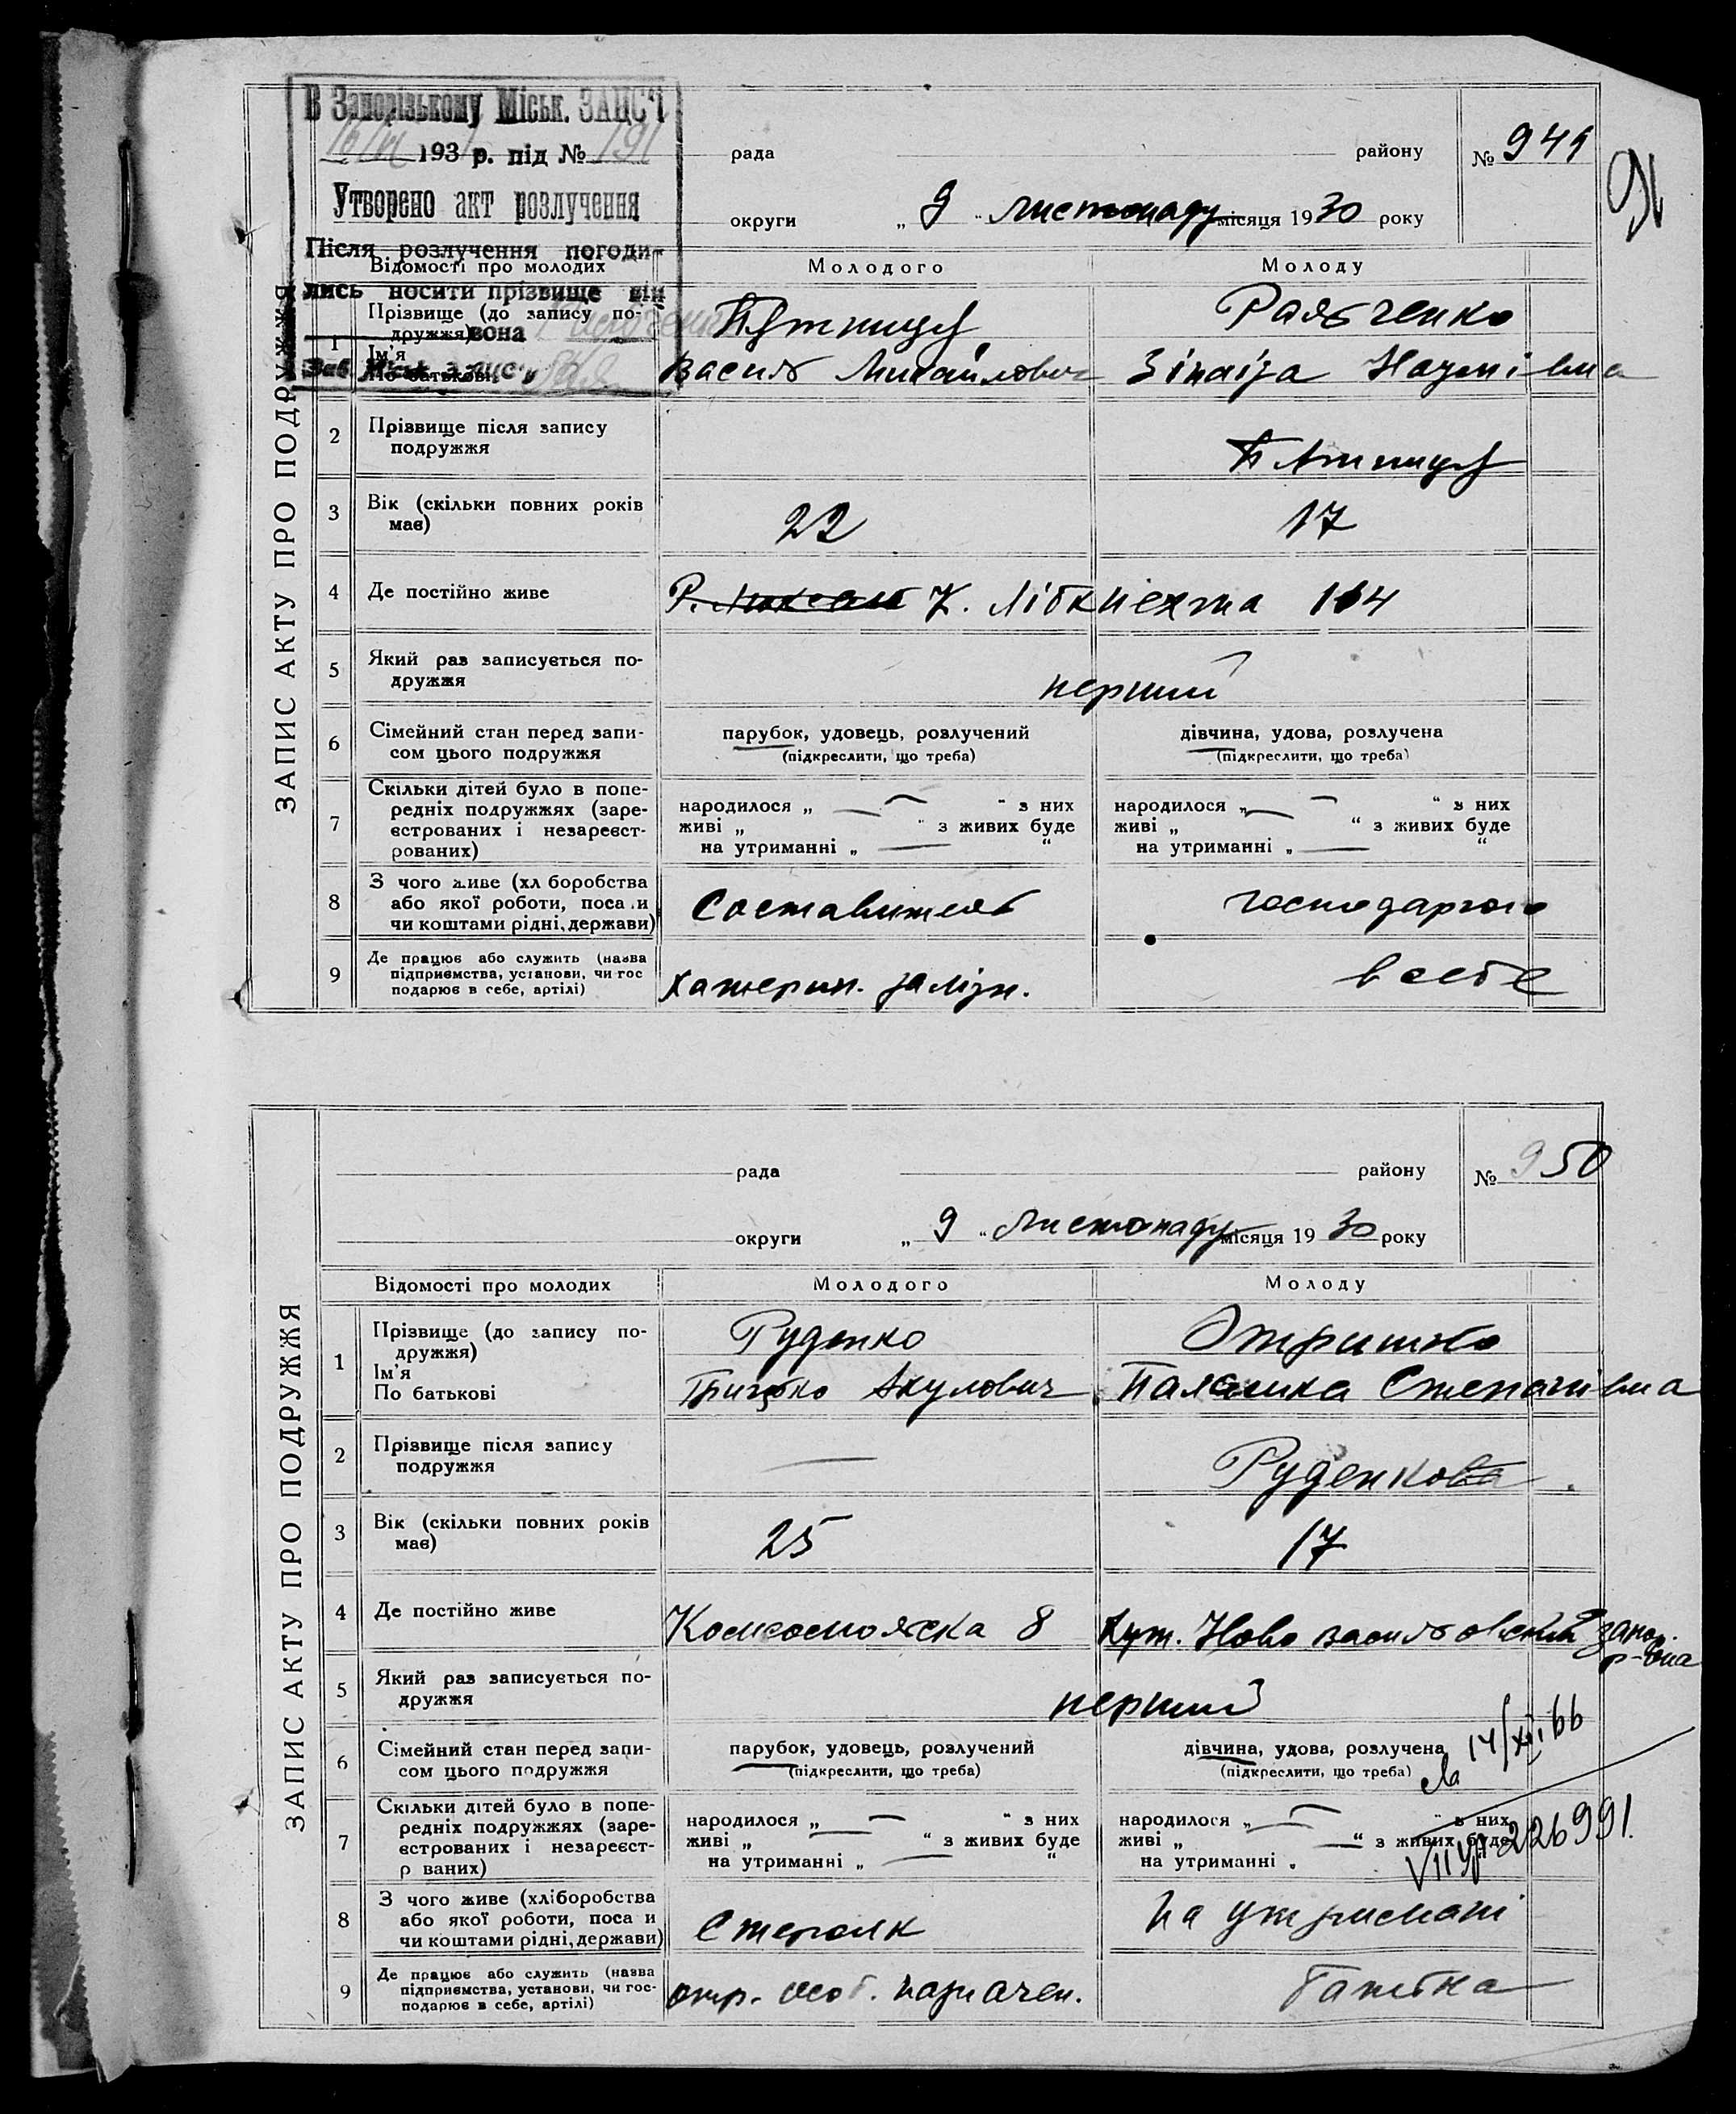 В Запорізькому Міськ. ЗАЦС'і
193 р. під № 191
Утворено акт розлучення
Після розлучення погоди-
лись носити прізвище він
вона
Зав. Міськ.
рада району № 949
91
округи „ 9 “ листопаду місяця 1930 року
ЗАПИС АКТУ ПРО ПОДРУЖЖЯ
Відомості про молодих Молодого Молоду
1 Прізвище (до запису по-
дружжя)
Ім'я
По батькові
Пятниця
Василь Михайлович
Раябченко
Зінаіда Наумівна
2 Прізвище після запису
подружжя
Пятниця
3 Вік (скільки повних років
має)
22 17
4 Де постійно живе Р. Люксем К. Лібкнехта 164
5 Який раз записується по-
дружжя
перший
6 Сімейний стан перед запи-
сом цього подружжя
парубок, удовець, розлучений
(підкреслити, що треба)
дівчина, удова, розлучена
(підкреслити, що треба)
7 Скільки дітей було в попе-
редніх подружжях (заре-
єстрованих і незареєст-
рованих)
народилося „ — “ з них
живі „ “ з живих буде
на утриманні „ — “
народилося „ — “ з них
живі „ “ з живих буде
на утриманні „ — “
8 З чого живе (хл боробства
або якої роботи, поса и
чи коштами рідні, держави)
Составитель
господаркою
9 Де працює або служить (назва
підприємства, установи, чи гос
подарює в себе, артілі)
Катерин. залізн.
в себе
рада району № 950
округи „ 9 “ Листопаду місяця 1930 року
ЗАПИС АКТУ ПРО ПОДРУЖЖЯ
Відомості про молодих Молодого Молоду
1 Прізвище (до запису по-
дружжя)
Ім'я
По батькові
Руденко
Грицько Акулович
Отришко
Палашка Степанівна
2 Прізвище після запису
подружжя
— Руденкова
3 Вік (скільки повних років
має)
25 17
4 Де постійно живе Комсомольска 8 Хут. Ново васильовский Запор.
р-на
5 Який раз записується по-
дружжя
перший
6 Сімейний стан перед запи-
сом цього подружжя
парубок, удовець, розлучений
(підкреслити, що треба)
дівчина, удова, розлучена
(підкреслити, що треба)
14/XII 66
7 Скільки дітей було в попе-
редніх подружжях (заре-
єстрованих і незареєст-
р ваних)
народилося „ — “ з них
живі „ — “ з живих буде
на утриманні „ — “
народилося „ — “ з них
живі „ — “ з живих буде
на утриманні „
226991.
8 З чого живе (хліборобства
або якої роботи, поса и
чи коштами рідні, держави)
Стерочк
На утримані
9 Де працює або служить (назва
підприємства, установи, чи гос-
подарює в себе, артілі)
отр. особ. назначен.
батька